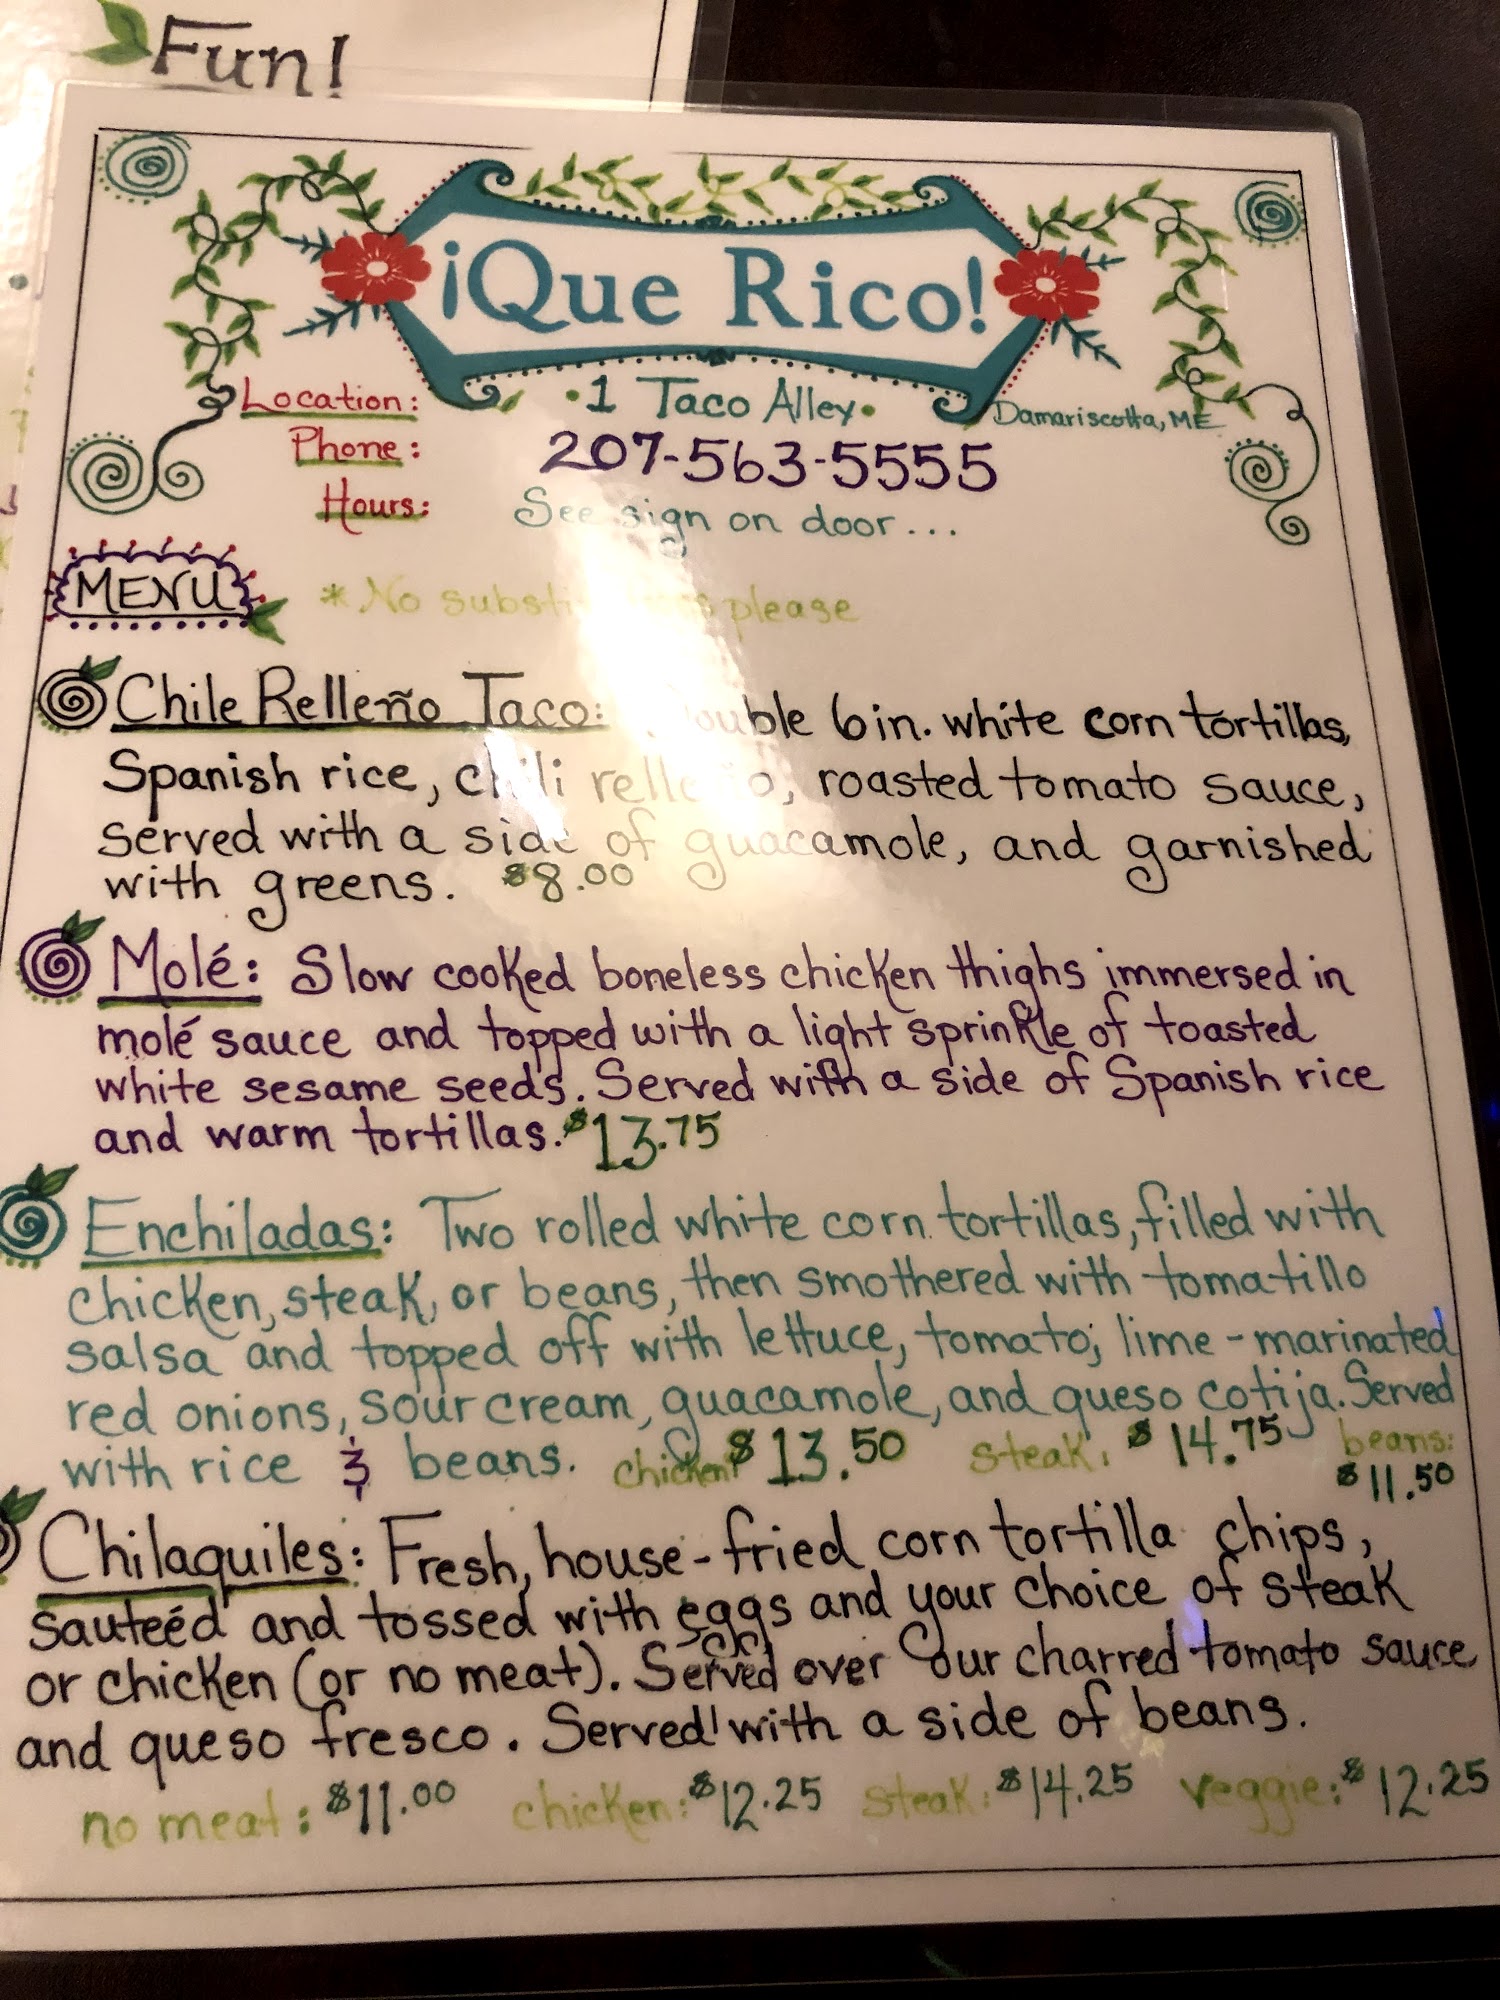 Fun!
¡Que Rico!
Location: •1 Taco Alley• Damariscotta, ME
Phone: 207-563-5555
Hours: See sign on door...
MENU * No please
Chile Relleño Taco: 6in. white corn tortillas,
Spanish rice, chili roasted tomato sauce,
served with a side of guacamole, and garnished
with greens. $8.00
Molé: Slow cooked boneless chicken thighs immersed in
molé sauce and topped with a light sprinkle of toasted
white sesame seeds. Served with a side of Spanish rice
and warm tortillas. $13.75
Enchiladas: Two rolled white corn tortillas, filled with
chicken, steak, or beans, then smothered with tomatillo
salsa and topped off with lettuce, tomato, lime-marinated
red onions, sour cream, guacamole, and queso cotija. Served
with rice & beans. chicken: $13.50 steak: $14.75 beans:
$11.50
Chilaquiles: Fresh, house-fried corn tortilla chips,
sauteéd and tossed with eggs and your choice of steak
or chicken (or no meat). Served over our charred tomato sauce
and queso fresco. Served with a side of beans.
no meat: $11.00 chicken: $12.25 steak: $14.25 veggie: $12.25